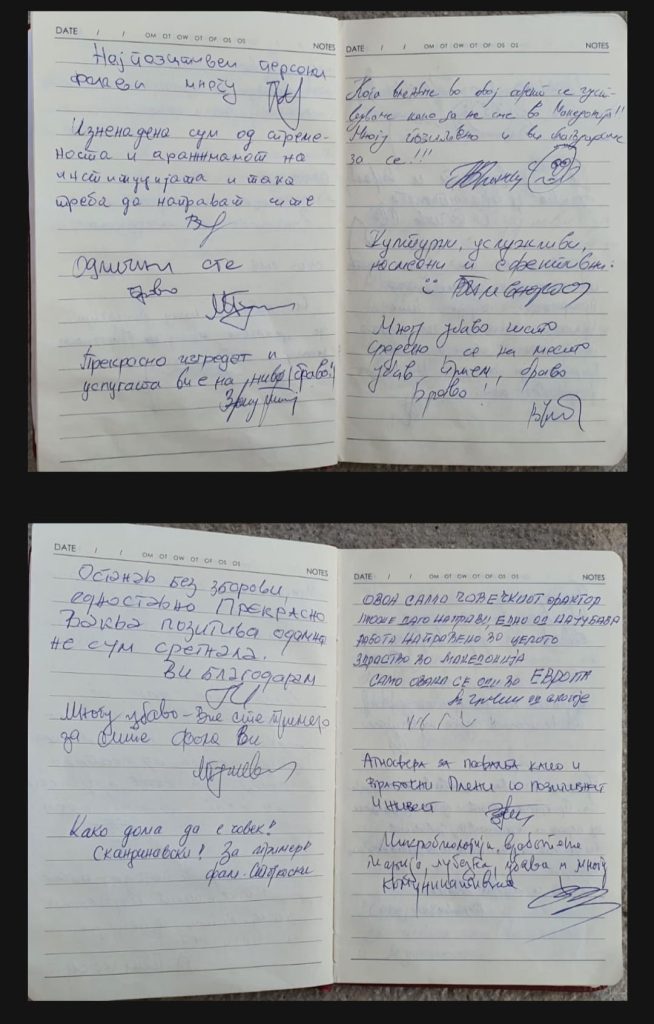 DATE / / OM OT OW OT OF OS OS NOTES
Најпозитивен персонал
фалам многу
Изненадена сум од
носта и аранжманот на
институцијата и така
треба да направат сите
Одлични сте
Браво
Прекрасно изгледат и
услугата ви е на ниво, браво!
DATE / / OM OT OW OT OF OS OS NOTES
Кога влегвме во овој објект се
како да не сме во Македонија!!
Многу позитивно и ви благодариме
за се!!!
Културни, услужливи,
насмеани и ефективни.
Многу убаво чисто
средено се на место
убав прием, браво
Браво!
DATE / / OM OT OW OT OF OS OS NOTES
Останав без зборови,
едноставно Прекрасно
Ваква позитива одамна
не сум сретнала.
Ви благодарам
Многу убаво - Вие сте пример
за сите фала Ви
Како дома да е човек!
Скандинавски! За пример!
фам.
DATE / / OM OT OW OT OF OS OS NOTES
ОВОА САМО ЧОВЕЧКИОТ ФАКТОР
МОЖЕ ДА ГО НАПРАВИ, ЕДНО ОД НАЈУБАВА
РАБОТА НАПРАВЕНО ВО ЦЕЛОТО
ЗДРАВСТВО ВО МАКЕДОНИЈА
САМО ОВАКА СЕ ОДИ ВО ЕВРОПА
од скопје
Атмосфера за како и
Вработени Плени со позитивност
Микробиологија, вработена
Марија, љубезна, убава и многу
комуникативна